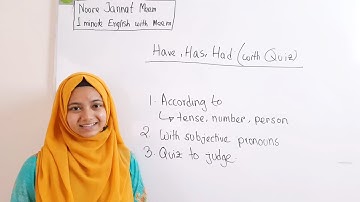 Noore Jannat Meem
1 minute English with Meem
Have, Has, Had (with Quiz)
1. According to
↳ tense, number, person
2. With subjective pronouns
3. Quiz to judge